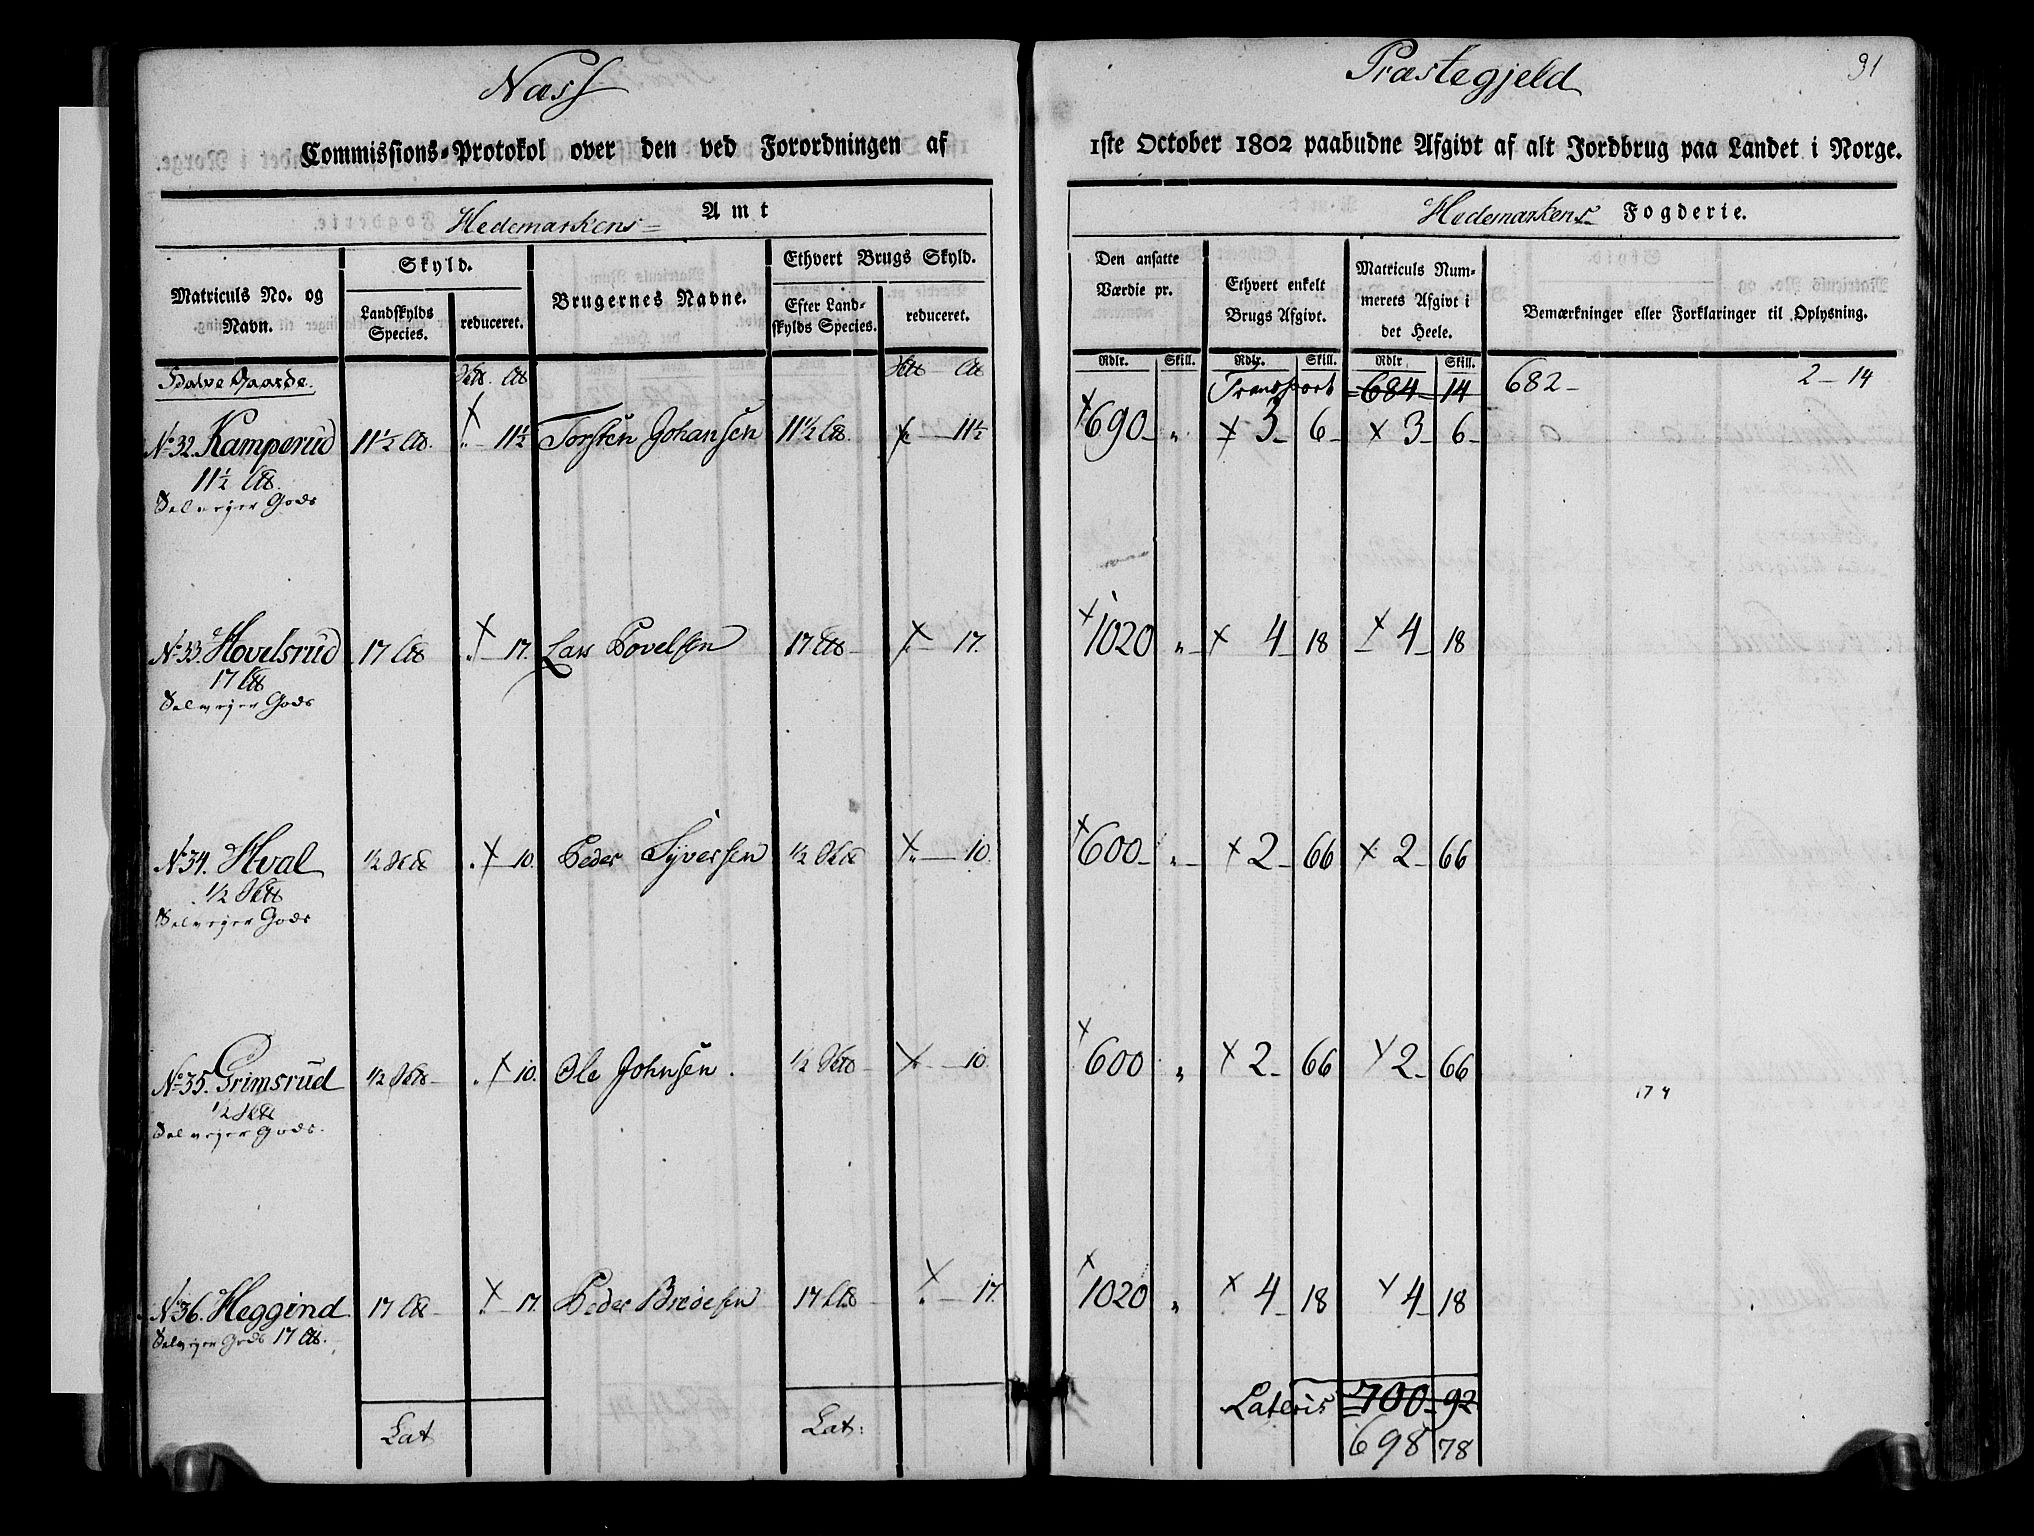 Næss
Præstegjeld
31
Commissions-Protokol over den ved Forordningen af
1ste October 1802 paabudne Afgivt af alt Jordbrug paa Landet i Norge.
Hedemarkens Amt
Hedemarkens Fogderie.
Matriculs No. og Navn.
Skyld.
Landskylds Species.
reduceret.
Brugernes Navne.
Ethvert Brugs Skyld.
Efter Landskylds Species.
reduceret.
Den ansatte Værdie pr.
Ethvert enkelt Brugs Afgivt.
Matriculs Nummerets Afgivt i det Heele.
Bemærkninger eller Forklaringer til Oplysning.
Rdlr. Skill. Rdlr. Skill. Rdlr Skill.
Halve Gaarde.
Transport 684 14 682 - 2 - 14
No 32. Kamperud 11½ 11½ Torsten Johansen 11½ 11½ 690 " 3 6 3 6
11½
Selvejer Gods
No 33. Hovelsrud 17 17. Lars Povelsen 17 17. 1020 " 4 18 4 18
17
Selvejer Gods
No 34. Hval ½ 10. Peder Syversen ½ 10. 600 " 2 66 2 66
½
Selvejer Gods
No 35. Grimsrud ½ 10. Ole Johnsen. ½ 10. 600 " 2 66 2 66
½
Selvejer Gods.
174
No 36. Heggind 17 17. Peder 17 17. 1020 " 4 18 4 18
Selvejer Gods 17
Lat Lat: Lateris 700 92
698 78